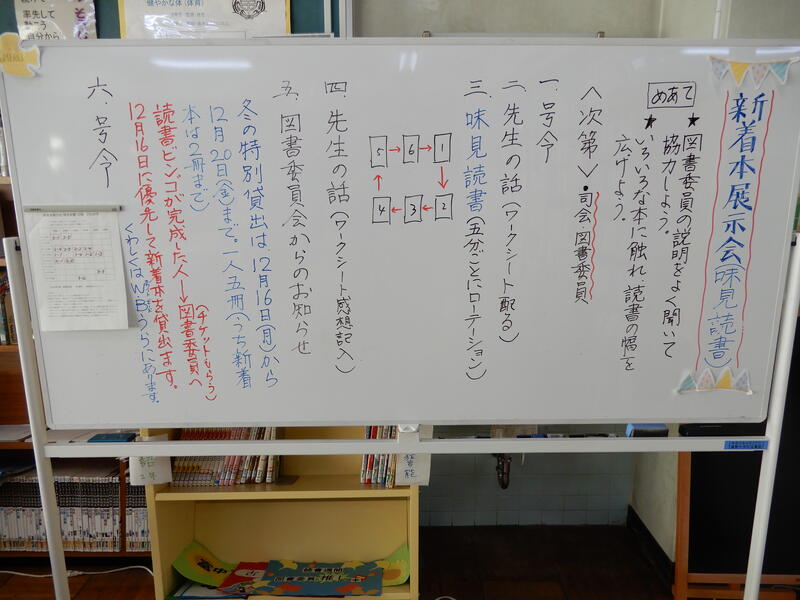 新着本展示会（味見読書）
めあて
★図書委員の説明をよく聞いて
協力しよう。
★いろいろな本に触れ、読書の幅を
広げよう。
〈次第〉・司会・図書委員
一、号令
二、先生の話（ワークシート配る）
三、味見読書（五分ごとにローテーション）
5→6→1
4←3←2
四、先生の話（ワークシート感想記入）
五、図書委員会からのお知らせ
冬の特別貸出は、12月16日（月）から
12月20日（金）まで。一人五冊（うち新着
本は2冊まで）
（チケットもらう）
読書ビンゴが完成した人→図書委員へ
12月16日に優先して新着本を貸出ます。
くわしくはWBうらにあります。
六、号令
健やかな体（体育）
率先して
自分から
読書週間